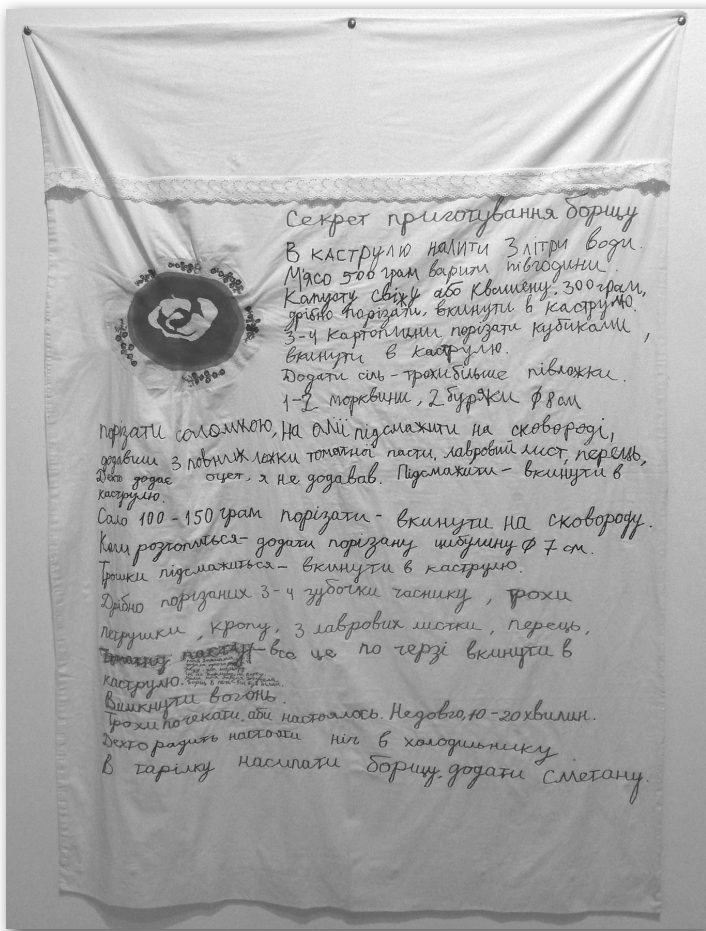 Секрет приготування борщу
В каструлю налити 3 літри води.
М'ясо 500 грам варити півгодини.
Капусту свіжу або квашену, 300 грам,
дрібно порізати, вкинути в каструлю.
3-4 картоплини порізати кубиками,
вкинути в каструлю.
Додати сіль - трохи більше півложки.
1-2 морквини, 2 буряки ∅ 8 см
порізати соломкою, на олії підсмажити на сковороді,
додавши 3 повних ложки томатної пасти, лавровий лист, перець,
Дехто додає оцет, я не додавав. Підсмажити - вкинути в
каструлю.
Сало 100-150 грам порізати - вкинути на сковороду.
Коли розтопиться - додати порізану цибулину ∅ 7 см.
Трошки підсмажиться - вкинути в каструлю.
Дрібно порізаних 3-4 зубочки часнику, трохи
петрушки, кропу, 3 лаврових листки, перець,
томатну пасту - все це по черзі вкинути в
каструлю.
Вимкнути вогонь.
Трохи почекати, аби настоялось. Недовго, 10-20 хвилин.
Дехто радить настояти ніч в холодильнику
В тарілку насипати борщу, додати сметану.